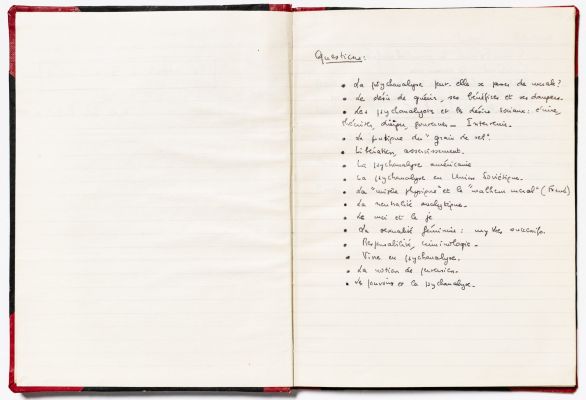 Questions :
• La psychanalyse peut-elle se passer de morale ?
• Le désir de guérir, ses bénéfices et ses dangers.
• Les psychanalystes et les désirs sociaux :
théories, gouverner — Intervenir.
• La pratique du "grain de sel"
• Libération, asservissement.
• La psychanalyse américaine
• La psychanalyse en Union Soviétique.
• La "misère physique" et le "malheur moral" (Freud)
• La neutralité analytique.
• Le moi et le je
• La sexualité féminine : mythes successifs.
• Responsabilité, criminologie.
• Vivre en psychanalyse.
• La notion de perversion.
• Le pouvoir et la psychanalyse.